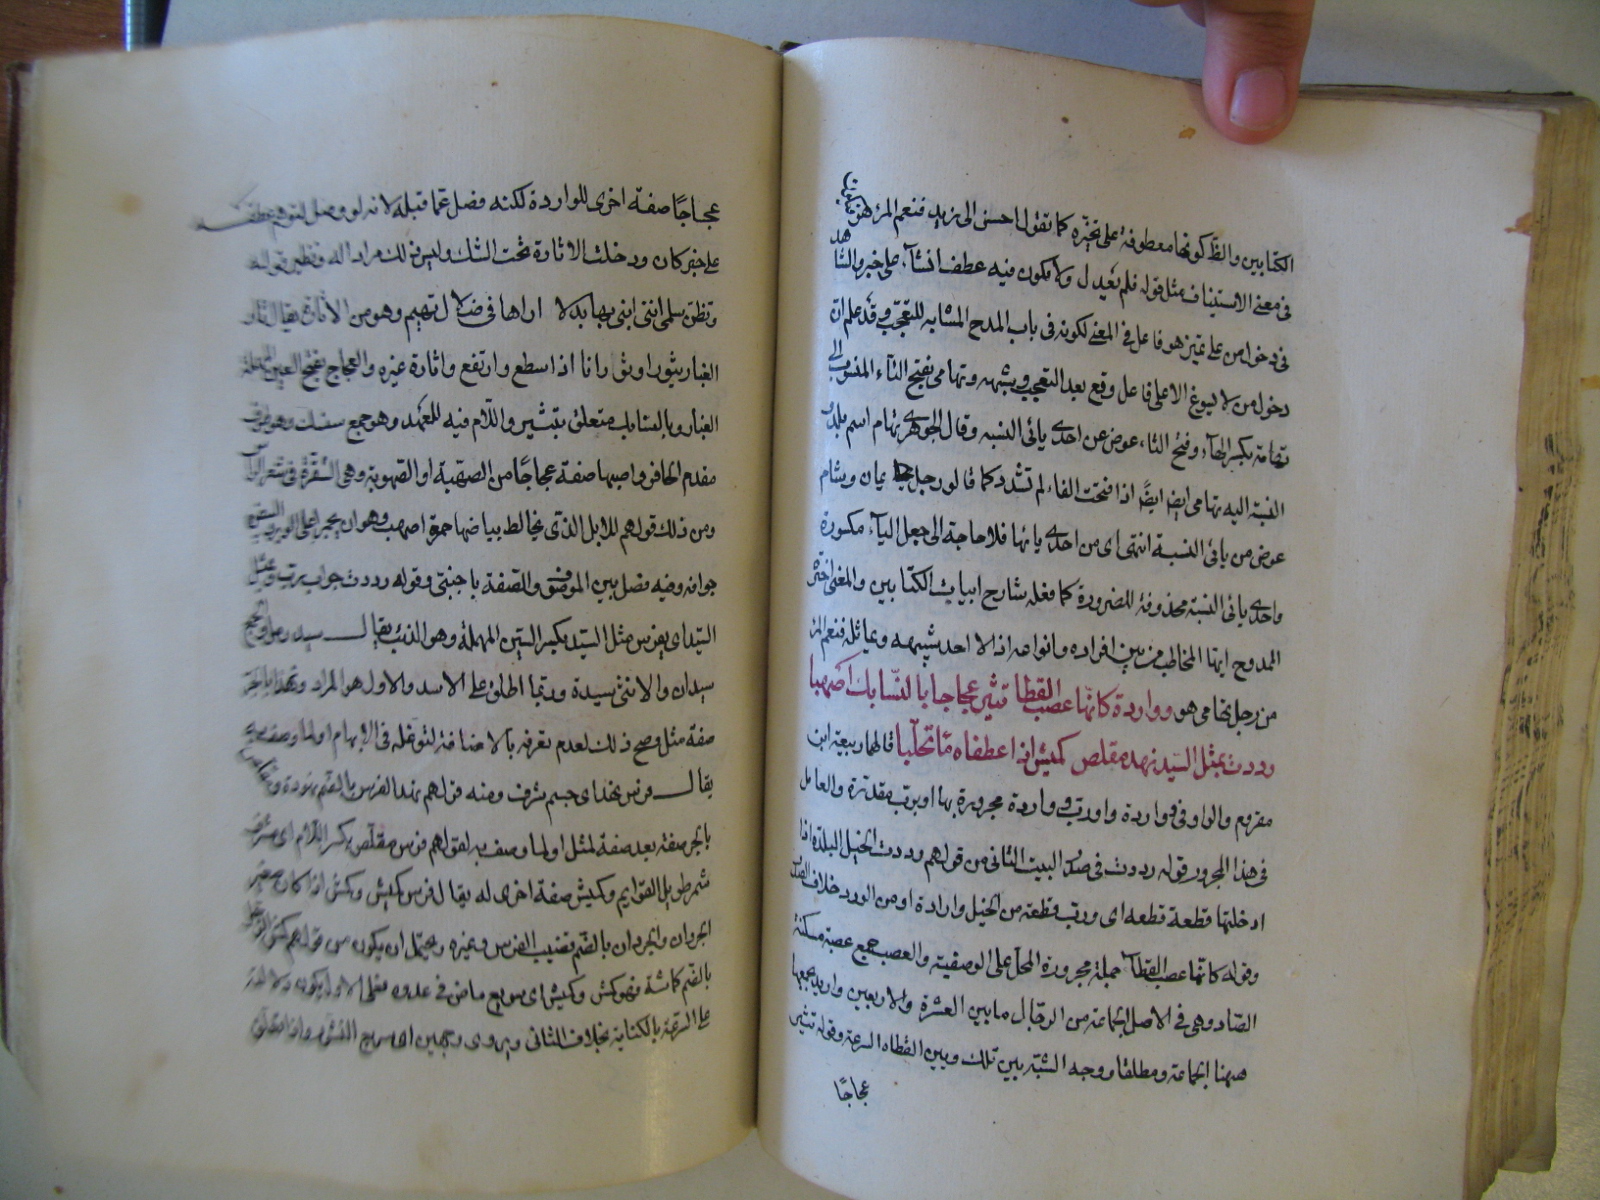 الكتابين والظ كونها معطوفة على نخيره كما تقول احسن الى زيد فنعم المرء هو
فى معنى الاستيناف مثل قوله فلم نعدل ولا مكون فيه عطف انشاء على خبر والشاهد
فى دخول من على تميز هو فاعل فى المعنى لكونه فى باب المدح المشابه للتعجب وقد علم ان
دخول من لا يسوغ الا على فاعل وقع بعد التعجب وشبهه وتهامى بفتح التاء المنسوب الى
تهامة بكسر التاء وفتح التاء عوض عن احدى يائى النسبه وقال الجوهرى تهام اسم بلد و
النسبة اليه تهامى ايضا اذا فتحت التاء لم تشدد كما قالو رجل يمان وشام
عوض من يائى النسبة انتهى اى من احدى يائها فلا حاجة الى جعل الياء مكسورة
واحدى يائى النسبة محذوفة للضرورة كما فعله شارح ابيات الكتابين والمعنى اختر
الممدوح ايها المخاطب من بين افراده وانواعه اذ لا احد يشبهه ويماثله فنعم المرء
من رجل تهامى هو وواردة كانها عصب القطا تثير عجاجا بالسنابك اصهبا
رددت بمثل السيد نهد مقلص كميش اذا عطفاه ماء تحلبا قالهما ربيعة ابن
مقروم والواو فى وواردة واو رب وواردة مجرورة بها او برب مقدرة والعامل
فى هذا المجرور قوله رددت فى صدر البيت الثانى من قولهم وردت الخيل البلدة اذا
ادخلتها قطعة قطعه اى ورب قطعة من الخيل واردة او من الورد خلاف الصدر
وقوله كانها عصب القطا جملة مجرورة المحل على الوصفية والعصب جمع عصبة مسكنة
الصاد وهى فى الاصل الجماعة من الرجال ما بين العشرة والاربعين واريد بجمعها
ههنا الجماعة ومطلقا ووجه الشبه بين تلك وبين القطاه السرعة وقوله تثير
عجاجًا
عجاجًا صفة اخرى للواردة لكنه فصل عما قبله لانه لو وصل لتوهم عطفه
على خبر كان ودخلت الاثارة تحت الشك وليس ذلك مراد اله ونظير قوله
وتظن سلمى اننى ابغى بها بدلا اراها فى ضلال تهيم وهو من الاثارة يقال ثار
الغبار يثور اوثورانا اذا سطع وارتفع واثارة غيره والعجاج بفتح العين
الغبار وبالسنابك متعلق بتثير واللام فيه للعهد وهو جمع سنبك وهو طرف
مقدم الحافر واصهبا صفة عجاجًا من الصهبة او الصهوبة وهى الشقرة فى شعر الراس
ومن ذلك قولهم للابل الذى يخالط بياضها حمرة اصهب وهو ان يحمر اعلى الوبر وتبيض
جوافه وفيه فصل بين الموصوف والصفة باجنبى وقوله رددت جواب رب وبمثل
السيد اى بفرس مثل السيد بكسر السين المهملة وهو الذئب يقال سيد رمل والجمع
سيدان والانثى سيدة وربما اطلق على الاسد والاول هو المراد ونهد بالجر
صفة مثل وصح ذلك لعدم تعرفه بالاضافة لتوغله فى الابهام
يقال فرس نهد اى جسم مشرف ومنه قولهم نهد الفرس بالضم نهودة
بالجر صفة بعد صفة لمثل او لما وصف به لقولهم فرس مقلص بكسر اللام اى مشرف
شمر طويل القوايم وكميش صفة اخرى له يقال فرس كميش وكمش اذا كان صغير
الجردان والجردان بالضم قضيب الفرس وغيره ويحتمل ان يكون من قولهم كمش الرجل
بالضم كماشة فهو كمش وكميش اى سريع ماض فى عدوه
على السرعة بالكناية بخلاف الثانى ويروى وجهين اى سريع